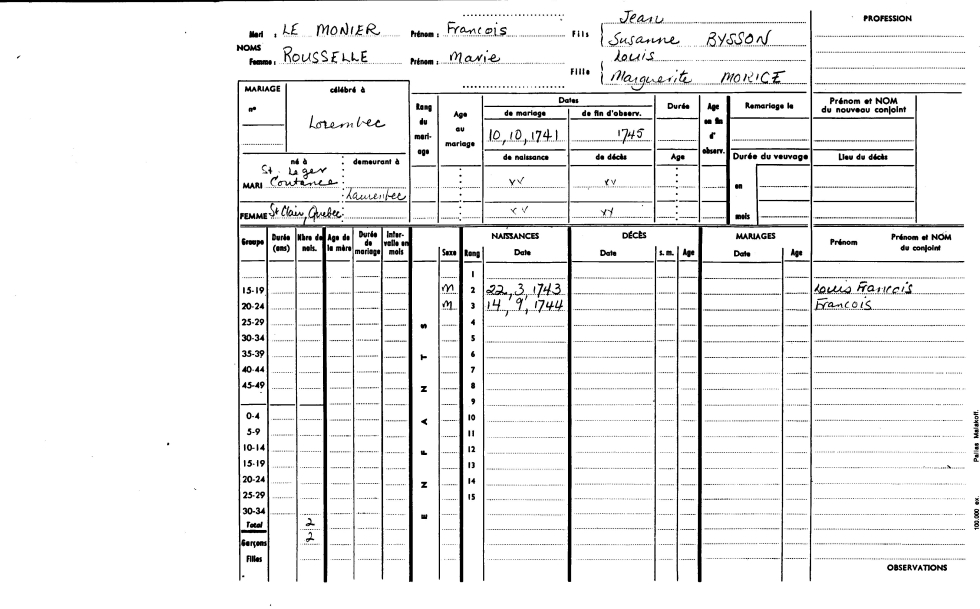 Mari : LE MONIER Prénom : Francois Fils Jean
Susanne BYSSON
NOMS
Femme : ROUSSELLE Prénom : Marie Fille Louis
Marguerite MORICE
PROFESSION
MARIAGE célébré à
n°
Lorembec
Rang du mari- age
Age au mariage
Dates
de mariage de fin d'observ.
10, 10, 1741 1745
de naissance de décès
Durée
Age
Age en fin d' observ.
Remariage le
Prénom et NOM du nouveau conjoint
Durée du veuvage
Lieu du décès
né à demeurant à
MARI St. Leger Coutance Laurentec
xx xx
en
FEMME St Clair, Quebec
xx xx
mois
Groupe Durée (ans) Nbre de nais. Age de la mère Durée de mariage Inter- valle en mois
ENFANTS
Sexe Rang
NAISSANCES Date
DÉCÈS Date s. m. Age
MARIAGES Date Age
Prénom Prénom et NOM du conjoint
1
15-19 M 2 22, 3, 1743 Louis Francois
20-24 M 3 14, 9, 1744 Francois
25-29 4
30-34 5
35-39 6
40-44 7
45-49 8
9
0-4 10
5-9 11
10-14 12
15-19 13
20-24 14
25-29 15
30-34
Total 2
Garçons 2
Filles
OBSERVATIONS
100.000 ex. Pallas Malakoff.